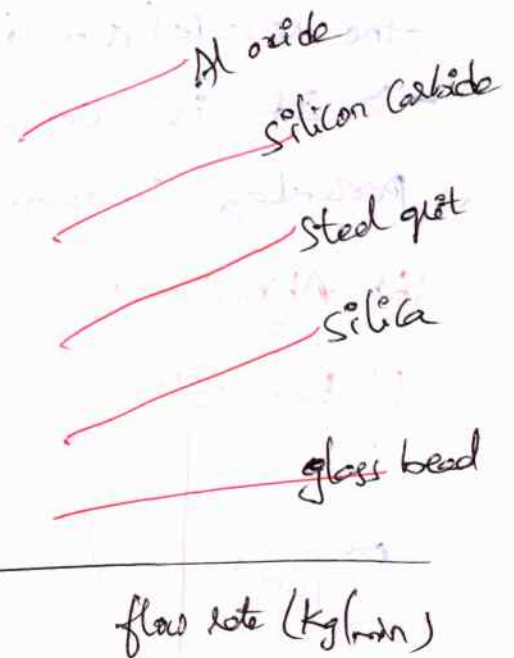 Al oxide
Silicon Carbide
Steel grit
Silica
glass bead
flow rate (Kg/min)